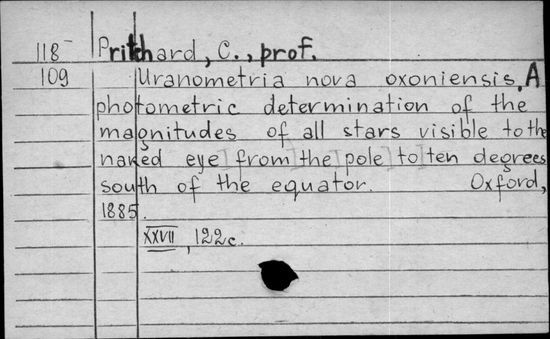 118 Pritchard, C., prof.
109 Uranometria nova oxoniensis. A
photometric determination of the
magnitudes of all stars visible to the
naked eye from the pole to ten degrees
south of the equator. Oxford,
1885.
XXVII, 122 c.